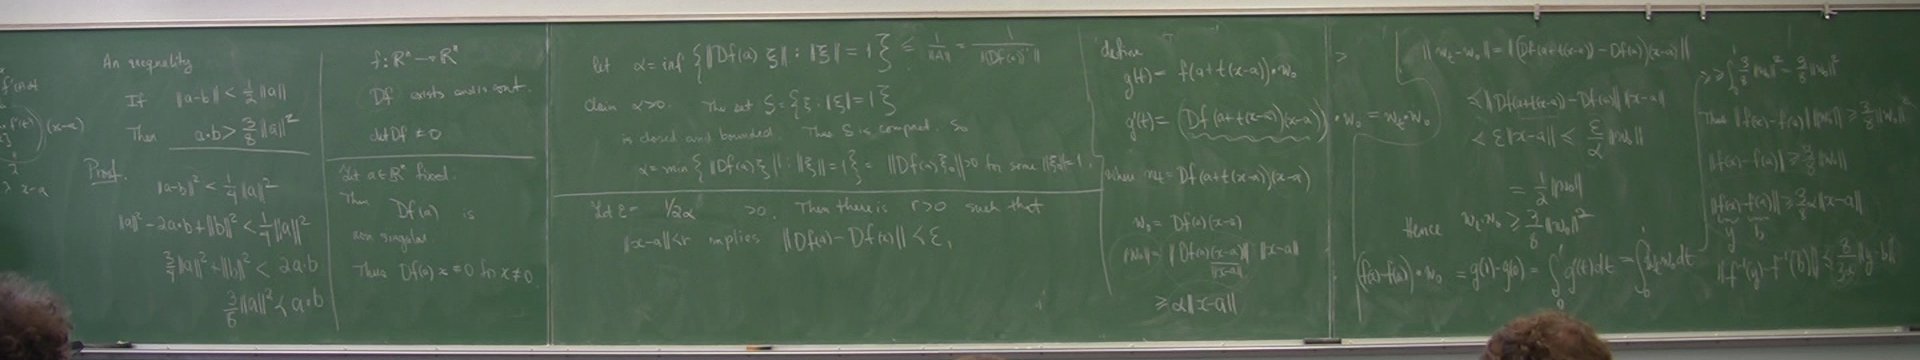 An inequality
If ‖a-b‖ < 1/2 ‖a‖
Then a·b > 3/8 ‖a‖²
Proof.
‖a-b‖² < 1/4 ‖a‖²
‖a‖² - 2a·b + ‖b‖² < 1/4 ‖a‖²
3/4 ‖a‖² + ‖b‖² < 2a·b
3/8 ‖a‖² < a·b
f: Rⁿ → Rⁿ
Df exists and is cont.
det Df ≠ 0
Let a ∈ Rⁿ fixed.
Then
Df(a) is
non singular
Thus Df(a) x ≠ 0 for x ≠ 0.
let α = inf { ‖Df(a) ξ‖ : ‖ξ‖ = 1 }
claim α > 0. The set S = { ξ : ‖ξ‖ = 1 }
is closed and bounded. Thus S is compact. So
α = min { ‖Df(a) ξ‖ : ‖ξ‖ = 1 } = ‖Df(a) ξ₀‖ > 0 for some ‖ξ₀‖ = 1.
Let ε = 1/2α > 0. Then there is r > 0 such that
‖x-a‖ < r implies ‖Df(a) - Df(x)‖ < ε,
define
g(t) = f(a+t(x-a))·w₀
g'(t) = (Df(a+t(x-a))(x-a))·w₀ = w_t·w₀
where w_t = Df(a+t(x-a))(x-a)
w₀ = Df(a)(x-a)
‖w₀‖ = ‖Df(a)(x-a)/‖x-a‖‖ ‖x-a‖
≥ α‖x-a‖
‖w_t - w₀‖ = ‖(Df(a+t(x-a)) - Df(a))(x-a)‖
≤ ‖Df(a+t(x-a)) - Df(a)‖ ‖x-a‖
< ε‖x-a‖ < ε/α ‖w₀‖
= 1/2 ‖w₀‖
Hence w_t·w₀ ≥ 3/8 ‖w₀‖²
(f(x)-f(a))·w₀ = g(1)-g(0) = ∫₀¹ g'(t)dt = ∫₀¹ w_t·w₀ dt
≥ ∫₀¹ 3/8 ‖w₀‖² = 3/8 ‖w₀‖²
Thus ‖f(x)-f(a)‖ ‖w₀‖ ≥ 3/8 ‖w₀‖²
‖f(x)-f(a)‖ ≥ 3/8 ‖w₀‖
‖f(x)-f(a)‖ ≥ 3/8 α‖x-a‖
y b
‖f⁻¹(y)-f⁻¹(b)‖ ≤ 8/3α ‖y-b‖